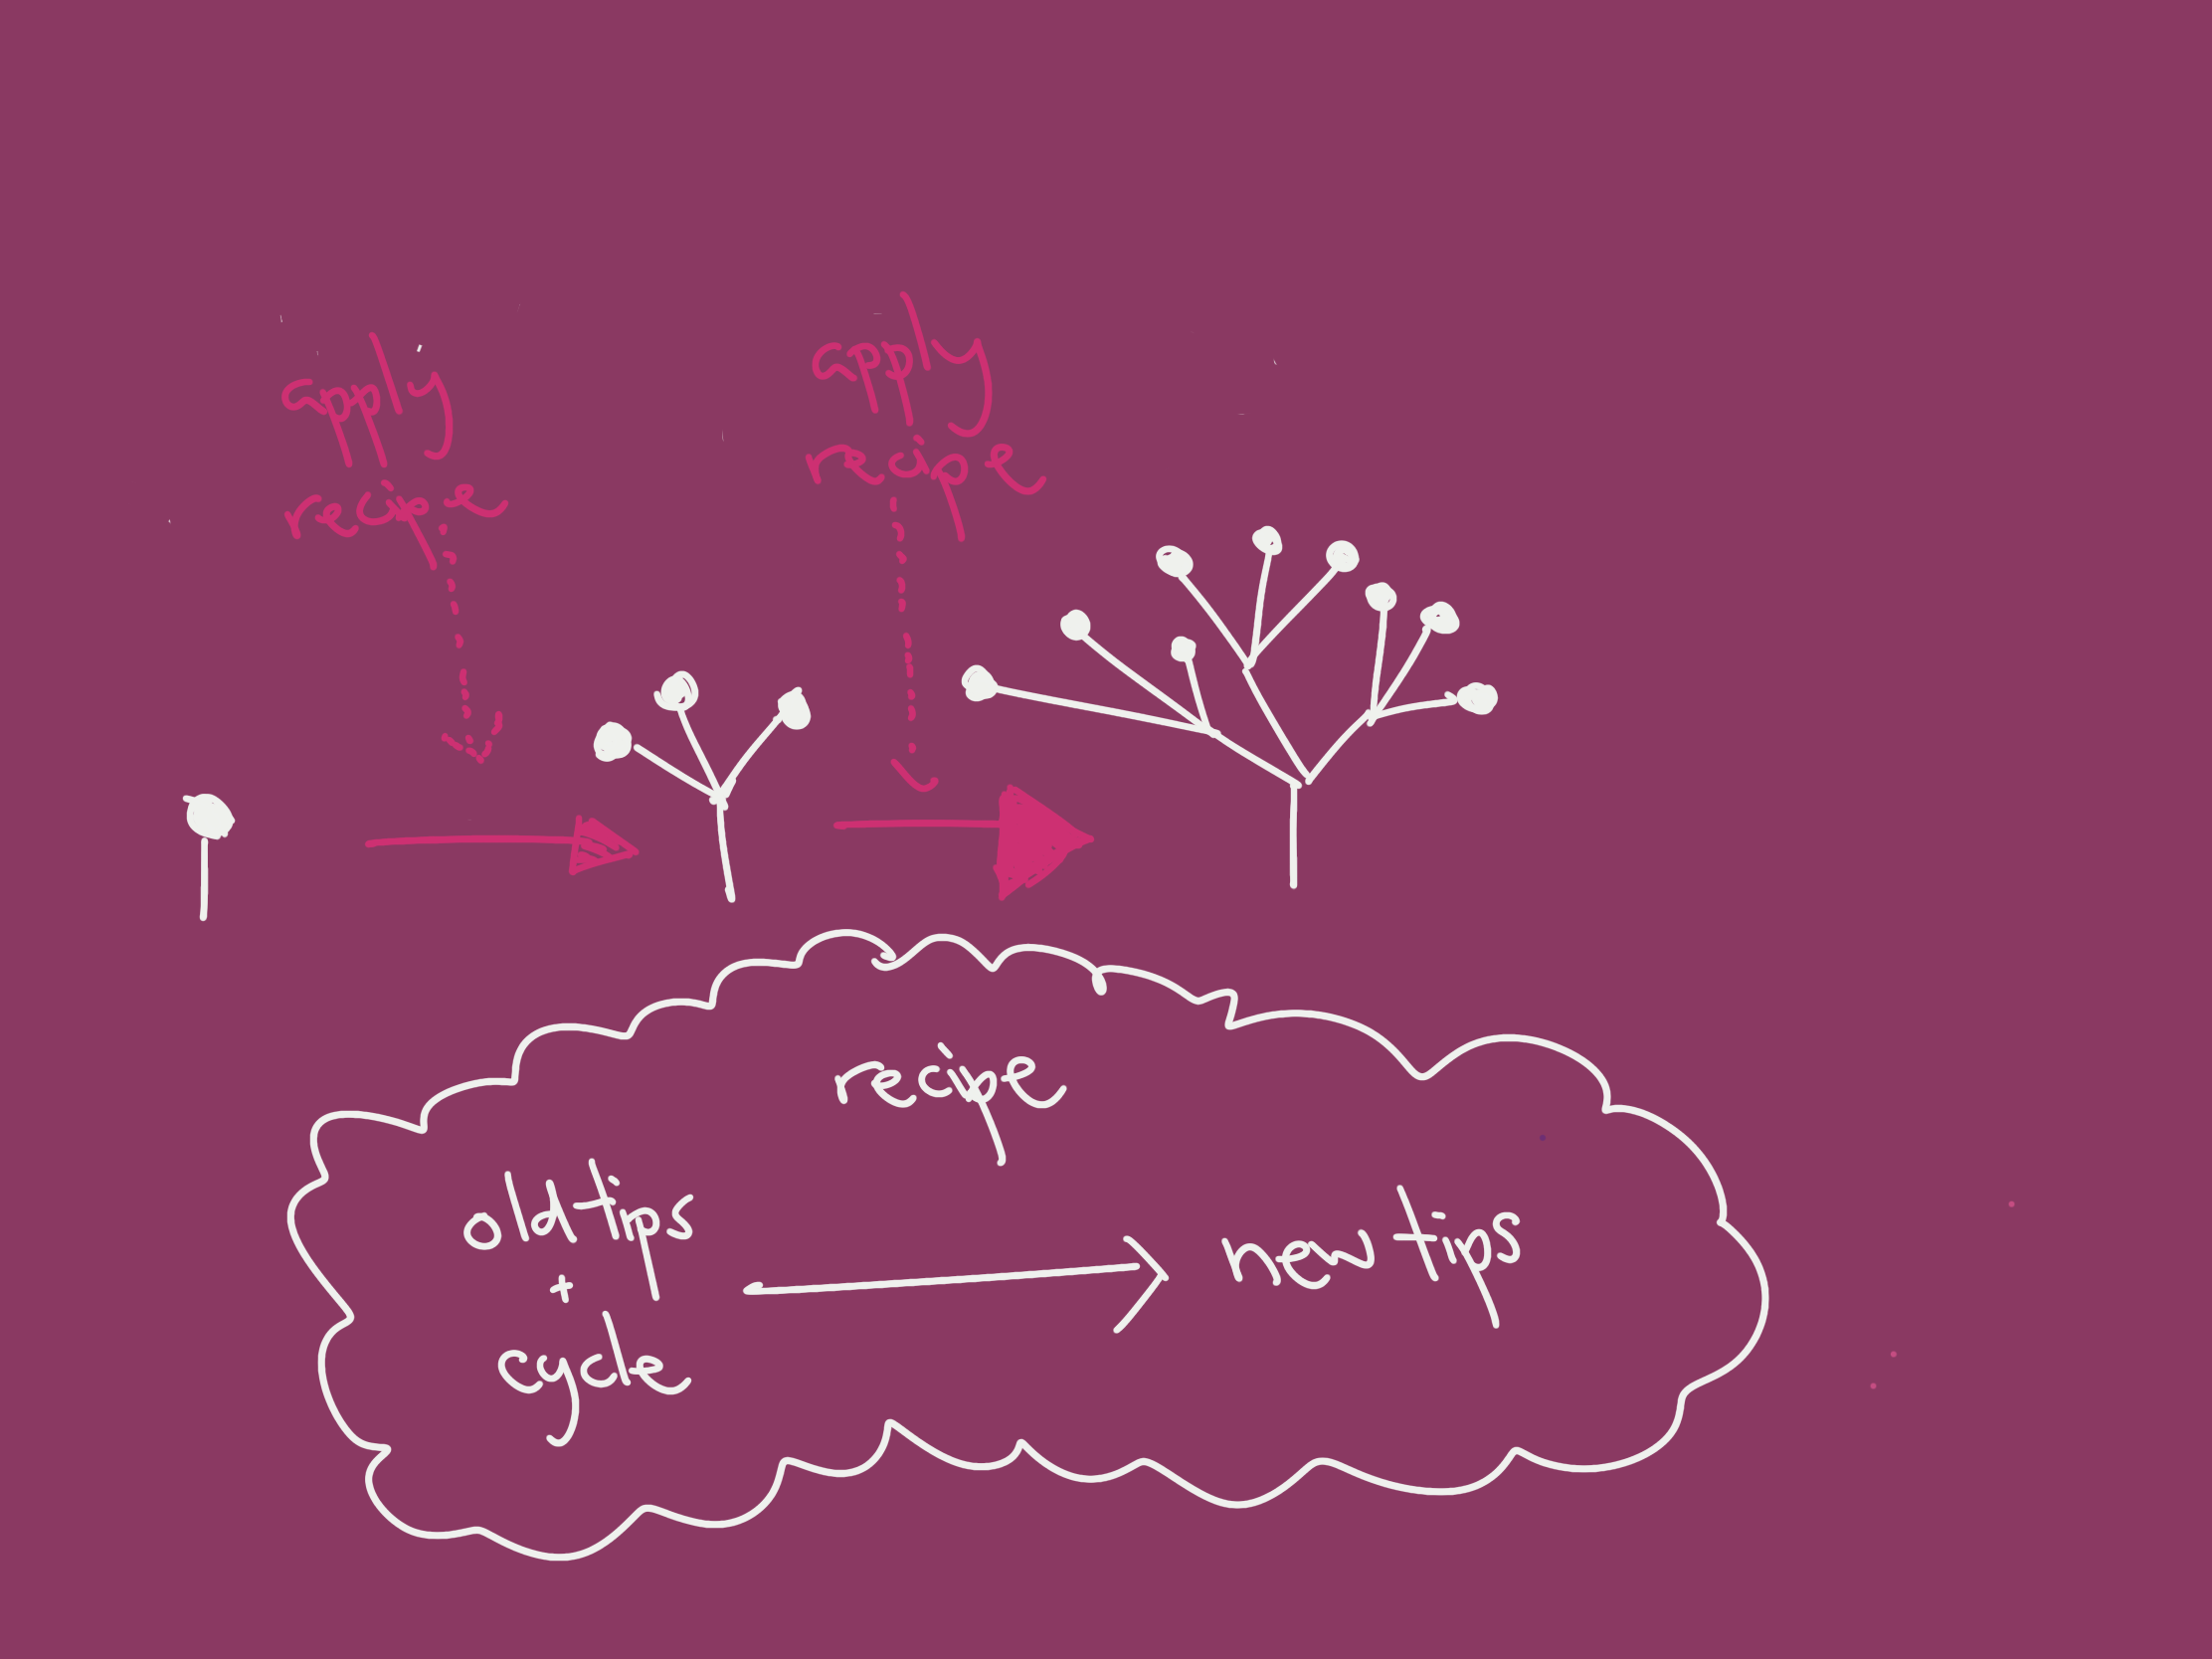 apply
recipe
apply
recipe
recipe
old tips
+
cycle
new tips